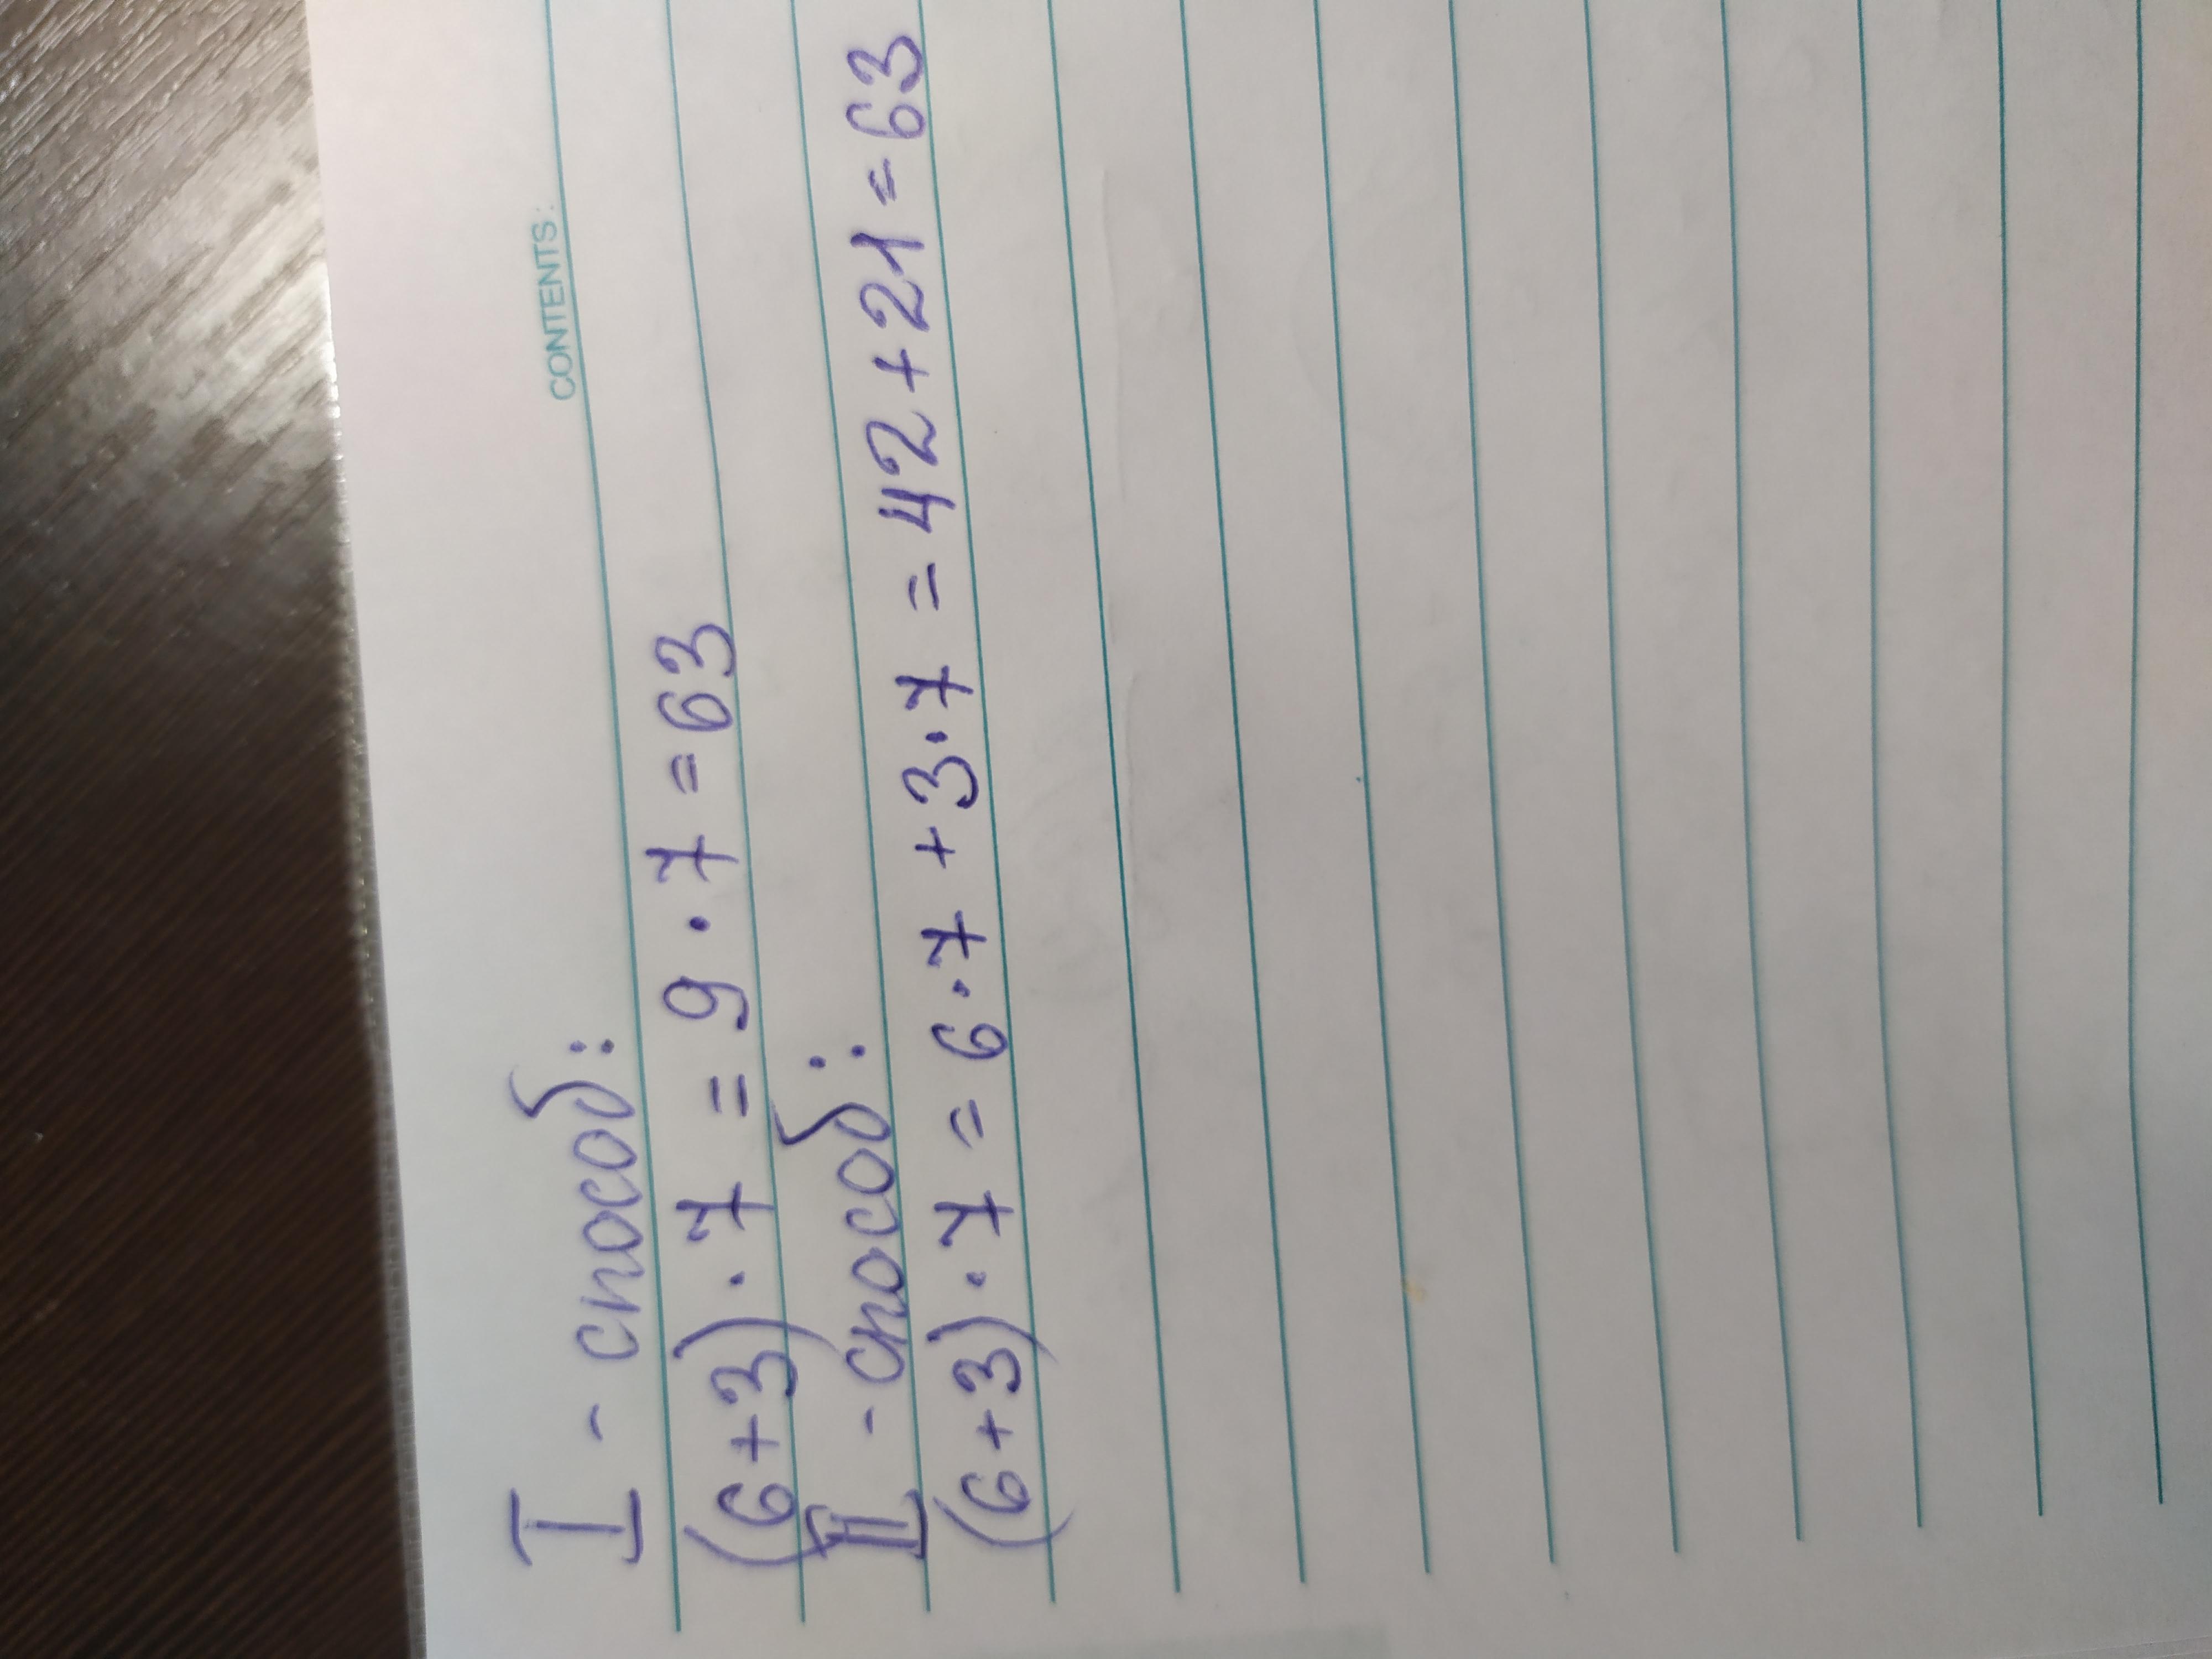 CONTENTS:
I - способ:
(6+3) · 7 = 9 · 7 = 63
II - способ:
(6+3) · 7 = 6 · 7 + 3 · 7 = 42 + 21 = 63